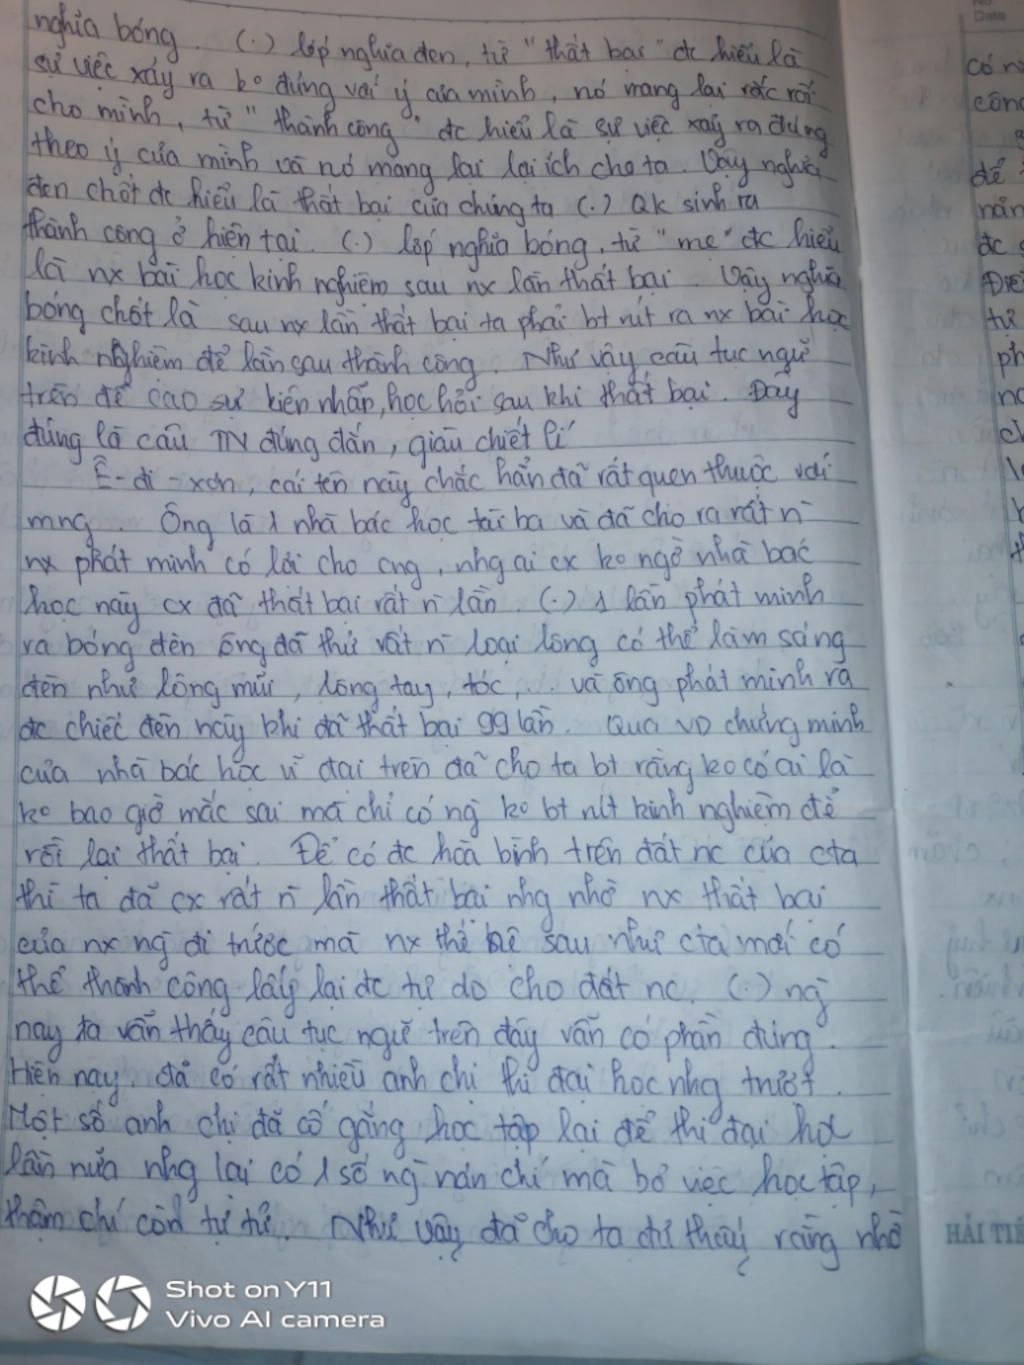 nghĩa bóng. (.) lớp nghĩa đen, từ "thất bại" đc hiểu là
sự việc xảy ra ko đúng với ý của mình, nó mang lại rắc rối
cho mình, từ "thành công" đc hiểu là sự việc xảy ra đúng
theo ý của mình và nó mang lại lại ích cho ta. Vậy nghĩa
đen chốt đc hiểu là thất bại của chúng ta (.) QK sinh ra
thành công ở hiện tại. (.) lớp nghĩa bóng, từ "mẹ" đc hiểu
là nx bài học kinh nghiệm sau nx lần thất bại. Vậy nghĩa
bóng chốt là sau nx lần thất bại ta phải bt rút ra nx bài học
kinh nghiệm để lần sau thành công. Như vậy câu tục ngữ
trên đề cao sự kiên nhẫn, học hỏi sau khi thất bại. Đây
đúng là câu TN đúng đắn, giàu chiết lí
Ê-đi-xơn, cái tên này chắc hẳn đã rất quen thuộc với
mng. Ông là 1 nhà bác học tài ba và đã cho ra rất n`
nx phát minh có lời cho cng, nhg ai cx ko ngờ nhà bác
học này cx đã thất bại rất n` lần. (.) 1 lần phát minh
ra bóng đèn ông đã thử rất n` loại lông có thể làm sáng
đèn như lông mũi, lông tay, tóc,... và ông phát minh ra
đc chiếc đèn này khi đã thất bại 99 lần. Qua VD chứng minh
của nhà bác học vĩ đại trên đã cho ta bt rằng ko có ai là
ko bao giờ mắc sai mà chỉ có ng` ko bt rút kinh nghiệm để
rồi lại thất bại. Để có đc hòa bình trên đất nc của cta
thì ta đã cx rất n` lần thất bại nhg nhờ nx thất bại
của nx ng` đi trước mà nx thế hệ sau như cta mới có
thể thành công lấy lại đc tự do cho đất nc. (.) ng`
nay ta vẫn thấy câu tục ngữ trên đây vẫn có phần đúng.
Hiện nay, đã có rất nhiều anh chị thi đại học nhg trượt.
Một số anh chị đã cố gắng học tập lại để thi đại học
lần nữa nhg lại có 1 số ng` nản chí mà bỏ việc học tập,
thậm chí còn tự tử. Như vậy đã cho ta thấy rằng nhờ
HẢI TIẾ
Date
Shot on Y11
Vivo AI camera